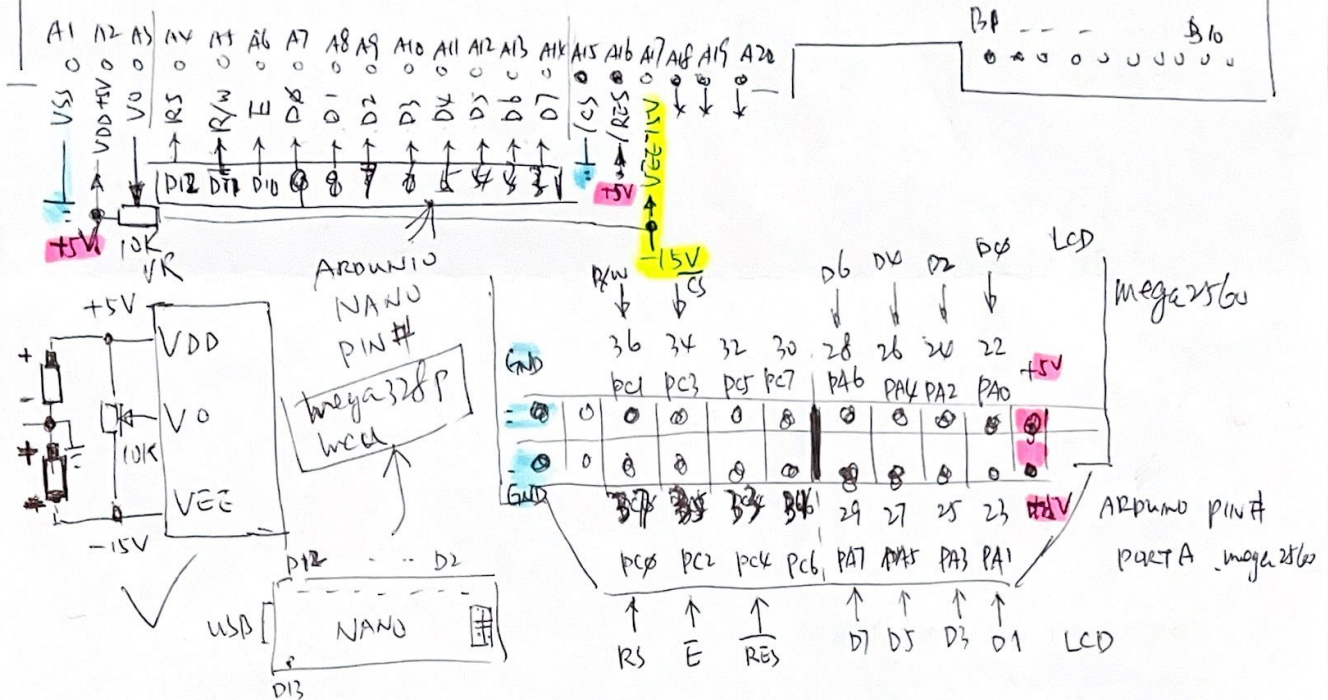 A1 A2 A3 A4 A5 A6 A7 A8 A9 A10 A11 A12 A13 A14 A15 A16 A17 A18 A19 A20
B1 - - - B10
VSS VDD+5V VO RS R/W E D0 D1 D2 D3 D4 D5 D6 D7 /CS /RES VEE-15V
D12 D11 D10 9 8 7 6 5 4 3
+5V
+5V 10K
VR
-15V
ARDUNIO
NANO
PIN#
mega328p
mcu
+5V
+
-
VDD
VO
10K
VEE
-15V
D12 .. .. D2
USB
NANO
D13
R/W CS D6 D4 D2 D0 LCD
mega2560
36 34 32 30 28 26 24 22
GND PC1 PC3 PC5 PC7 PA6 PA4 PA2 PA0 +5V
GND 29 27 25 23 ARDUINO PIN#
PC0 PC2 PC4 PC6 PA7 PA5 PA3 PA1 PORTA mega2560
RS E RES D7 D5 D3 D1 LCD